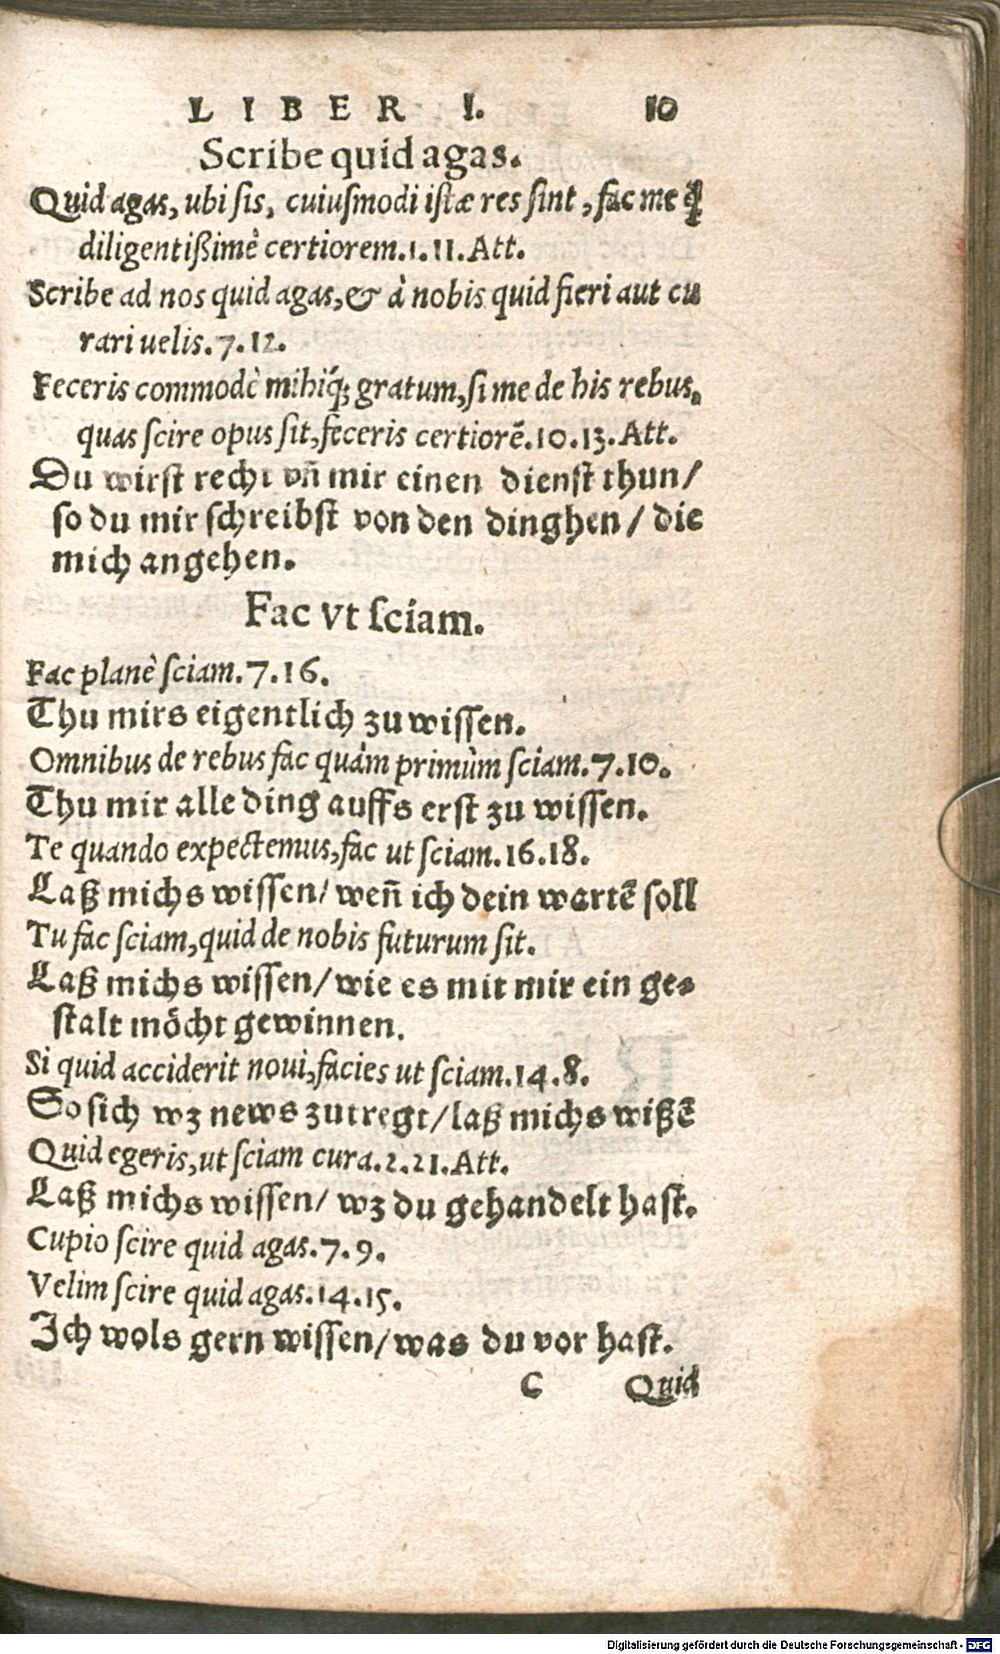 LIBER I. 10
Scribe quid agas.
Quid agas, ubi sis, cuiusmodi istæ res sint, fac me q̃
diligentißimè certiorem.1.11.Att.
Scribe ad nos quid agas,& à nobis quid fieri aut cu
rari uelis.7.12.
Feceris commodè mihiq́; gratum,si me de his rebus,
quas scire opus sit,feceris certiorē.10.13.Att.
Du wirst recht vñ mir einen dienst thun/
so du mir schreibst von den dinghen/ die
mich angehen.
Fac vt sciam.
Fac planè sciam.7.16.
Thu mirs eigentlich zu wissen.
Omnibus de rebus fac quàm primùm sciam.7.10.
Thu mir alle ding auffs erst zu wissen.
Te quando expectemus,fac ut sciam.16.18.
Laß michs wissen/ weñ ich dein wartē soll
Tu fac sciam,quid de nobis futurum sit.
Laß michs wissen/ wie es mit mir ein ge-
stalt möcht gewinnen.
Si quid acciderit noui,facies ut sciam.14.8.
So sich wz news zutregt/ laß michs wißē
Quid egeris,ut sciam cura.2.21.Att.
Laß michs wissen/ wz du gehandelt hast.
Cupio scire quid agas.7.9.
Velim scire quid agas.14.15.
Ich wols gern wissen/ was du vor hast.
C Quid
Digitalisierung gefördert durch die Deutsche Forschungsgemeinschaft - DFG